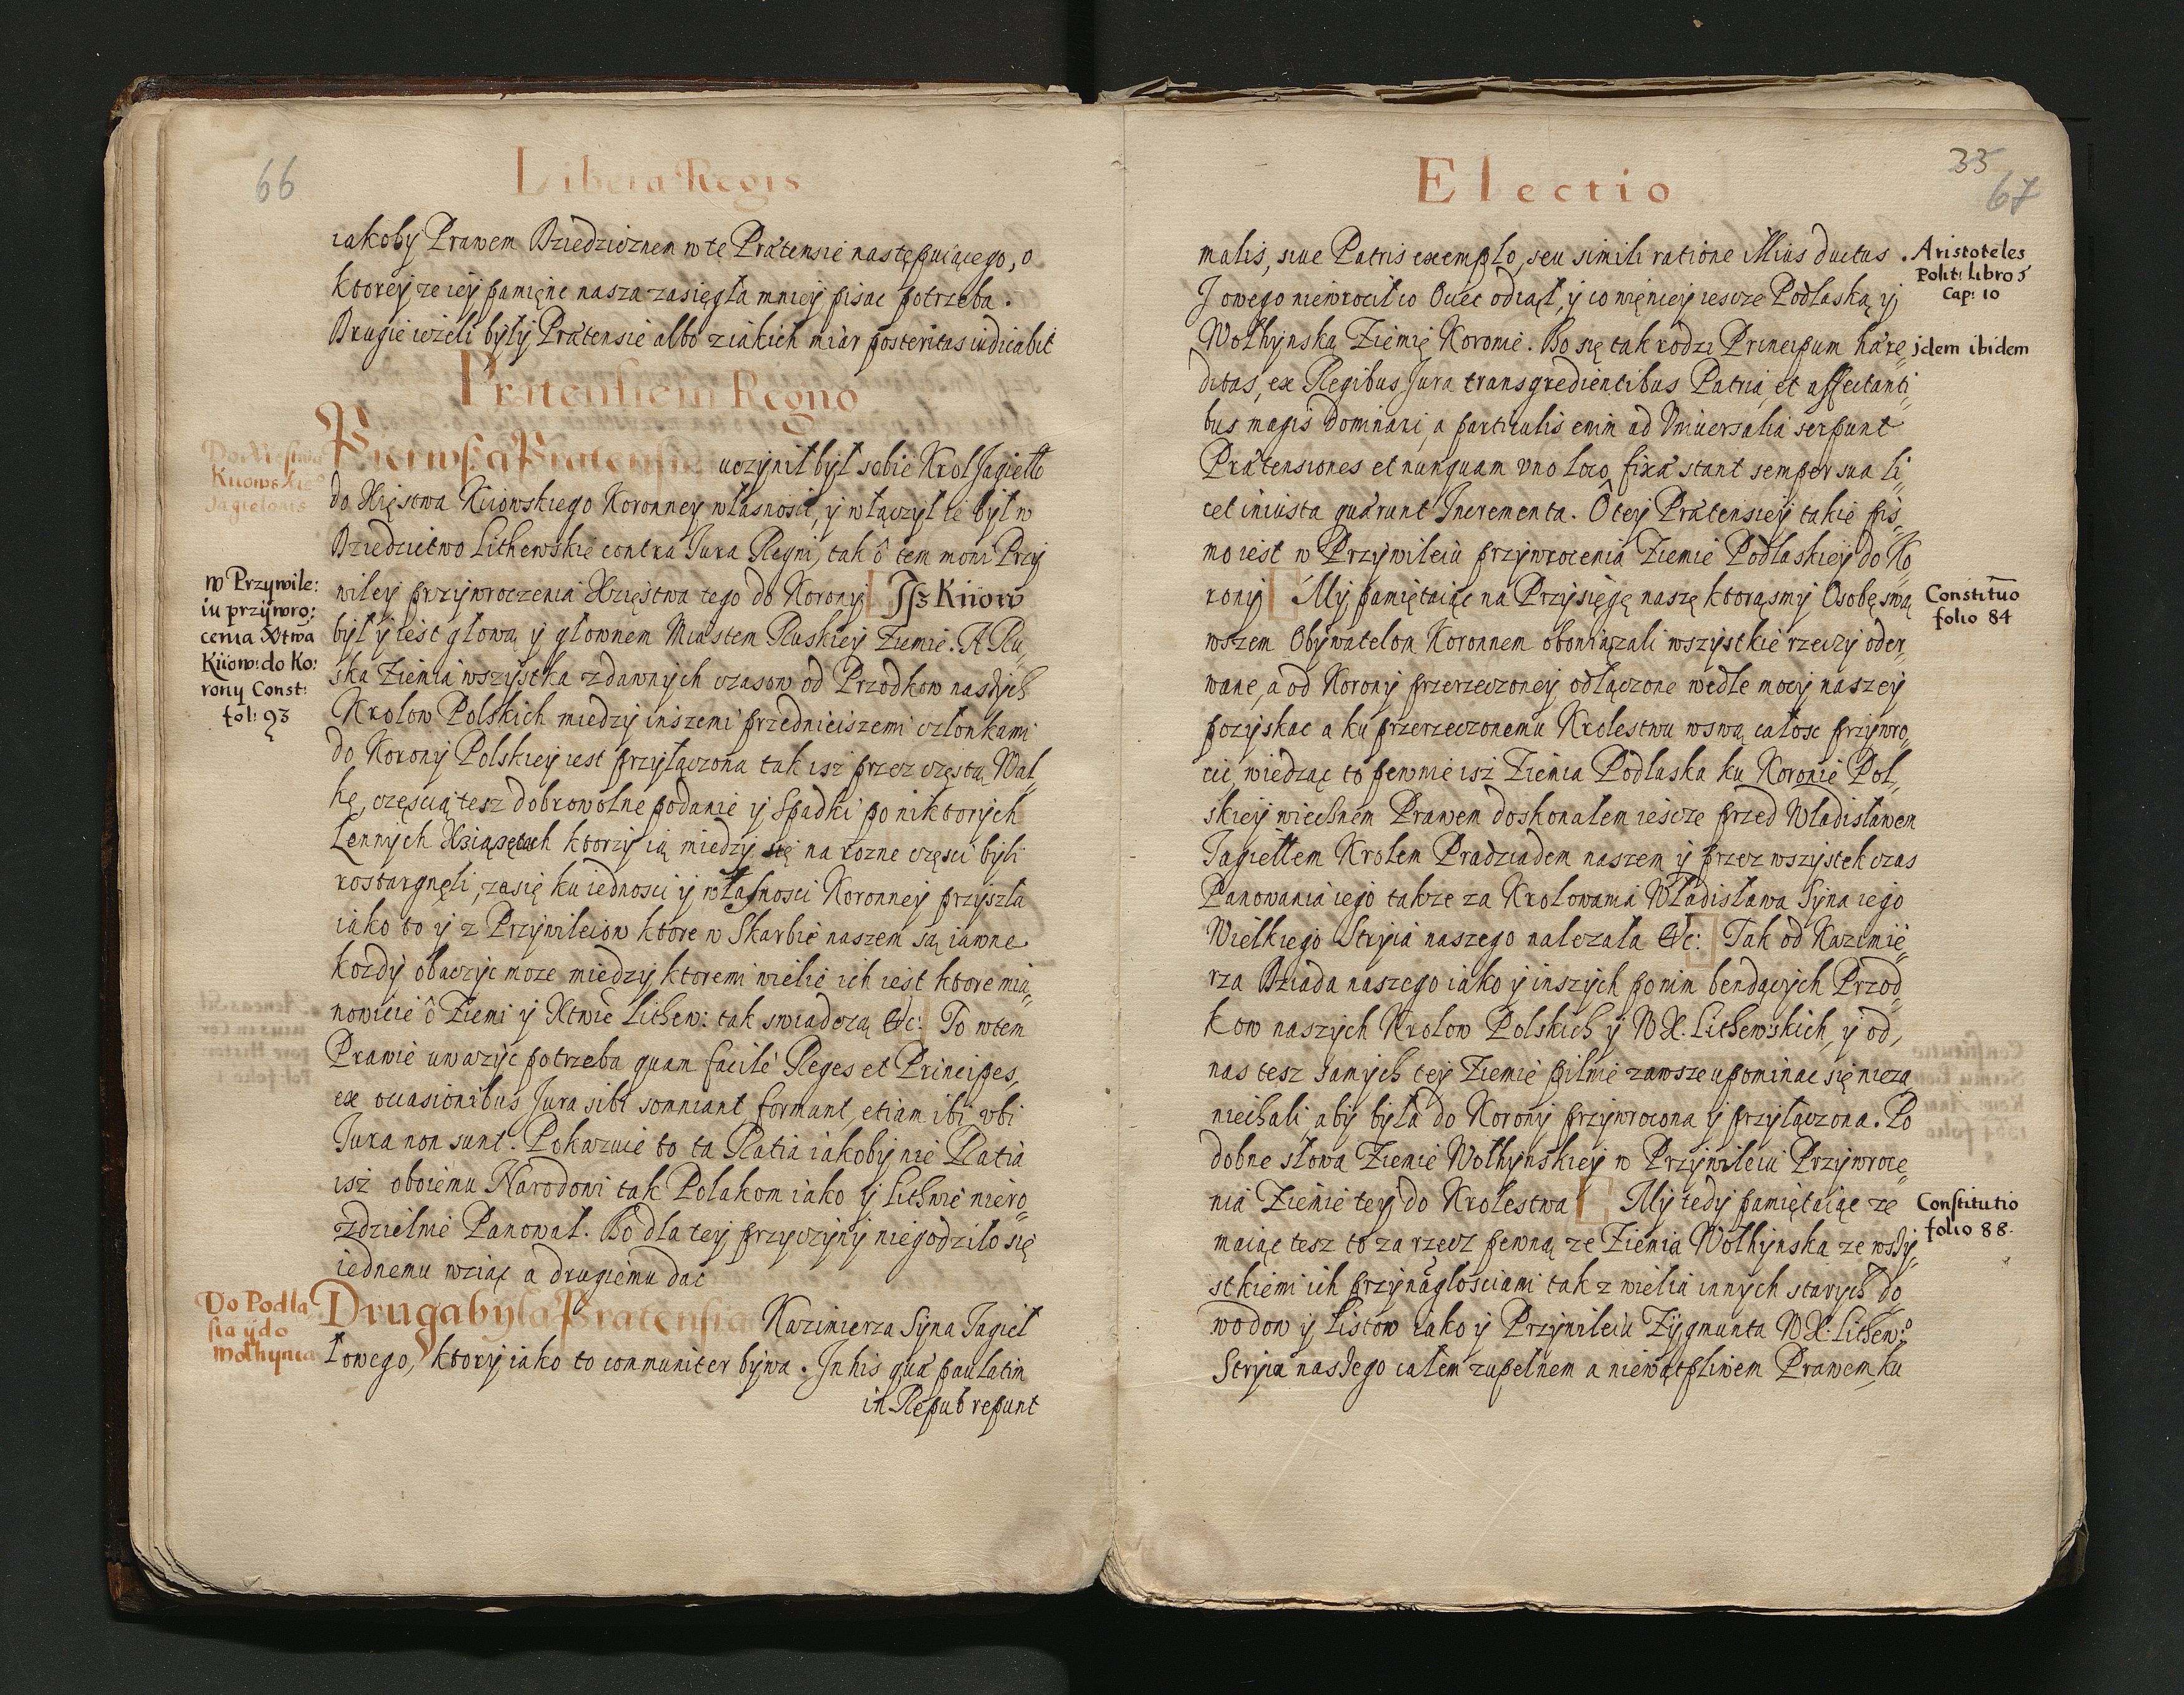 66
Libera Regis
iakoby Prawem Dziedzicznem w te Prætensie następuiącego, o
ktorey ze iey pamięnc nasza zasięgła mniey pisac potrzeba.
Drugie ieżeli były Prætensie albo z iakich miar posteritas iudicabit
Prætensiem Regno
Do Xięstwa
Kiiowskie°
Jagielonis
Pierwsza Prætensie uczynił był sobie Krol Jagiełło
do Xięstwa Kiiowskiego Koronney własnosci, y włączył ie był w
Dziedzictwo Lithewskie contra Jura Regni, tak ô tem mowi Przy
w Przywile:
iu przywro:
cenia Xtwa
Kiiow: do Ko:
rony Const:
fol: 93
wiley przywroczenia Xzięstwa tego do Korony Jsz Kiiow
był y iest głową y głownem Miastem Ruskiey Ziemie. A Ru„
ska Ziemia wszystka z dawnych czasow od Przodkow naszych
Krolow Polskich miedzy inszemi przednieiszemi członkami
do Korony Polskiey iest przyłączona tak isz przez częstą Wal„
kę, częscią tesz dobrowolne podanie y Spadki po niktorych
Lennych Xsiążętach ktorzy ią miedzy się na rozne częsci byli
rostargnęli, zasię ku iednosci y własnosci Koronney przyszła
iako to y z Przywileiow ktore w Skarbie naszem są iawne
kozdy obaczyc moze miedzy ktoremi wielie ich iest ktore mia„
nowicie ô Ziemi y Xtwie Lithew: tak swiadczą &c: To wtem
Prawie uwazyc potrzeba quam facile Reges et Principes,
ex occasionibus Jura sibi somniant formant, etiam ibi vbi
Jura non sunt. Pokazuie to ta Ratia iakoby nie Ratia
isż oboiemu Narodowi tak Polakom iako y Lithwie niero„
zdzielnie Panował. Bo dla tey przyczyny niegodziło się
iednemu wziąc a drugiemu dac
Do Podla
sia y do
Wołhynia
Druga była Prætensia Kazimierza Syna Jagieł
łowego, ktory iako to communiter bywa. Jn his quæ paulatin
in Repub repunt
Electio
33
67
malis, siue Patris exemplo, seu simili ratione illius ductus.
Aristoteles
Polit: libro 5
Cap: 10
J owego niewrocił co Ociec odiął, y co więniey iescze Podlaską y
Wołhynską Ziemię Koronie. Bo się tak rodzi Principum hære„
jdem ibidem
ditas, ex Regibus Jura transgredientibus Patria, et affectanti„
bus magis Dominari, a particulis enim ad Vniuersalia serpunt
Prætensiones et nunquam vno loco fixæ stant semper sua li„
cet iniusta quærunt Jncrementa. Ô tey Prætensiey takie pis„
mo iest w Przywileiu przywrocenia Ziemie Podlaskiey do Ko„
rony My pamiętaiąc na Przysięgę naszę ktorąsmy Osobę swą
Constitutio
folio 84
wszem Obywatelom Koronnem obowiązali wszystkie rzeczy oder„
wane, a od Korony przerzeczoney odłączone wedle mocy naszey
pozyskac a ku przerzeczonemu Krolestwu w swą całosc przywro„
cic, wiedząc to pewnie isż Ziemia Podlaska ku Koronie Pol„
skiey wiecsnem Prawem doskonałem iescze przed Wladisławem
Jagiełłem Krolem Pradziadem naszem y przez wszystek czas
Panowania iego takze za Krolowania Władisława Syna iego
Wielkiego Stryia naszego nalezała &c: Tak od Kazimie„
rza Dziada naszego iako y inszych po nim bendących Przod„
kow naszych Krolow Polskich y W X. Lithewskich, y od,
nas tesz samych tey Ziemie pilnie zawsze upominac się nieza
niechali, aby była do Korony przywrocona y przyłączona. Po
dobne słowa Ziemie Wołhynskiey w Przywileiu Przywroce„
nia Ziemie tey do Krolestwa My tedy pamiętaiąc ze
Constitutio
folio 88.
maiąc tesz to za rzecz pewną ze Ziemia Wołhynska ze wszy„
stkiemi ich przynągłosciami tak z wielia innych starych do
wodow y Listow iako y Przywileiu Zygmunta W X: Lithew:°
Stryia naszego całem zupełnem a niewątpliwem Prawem, ku